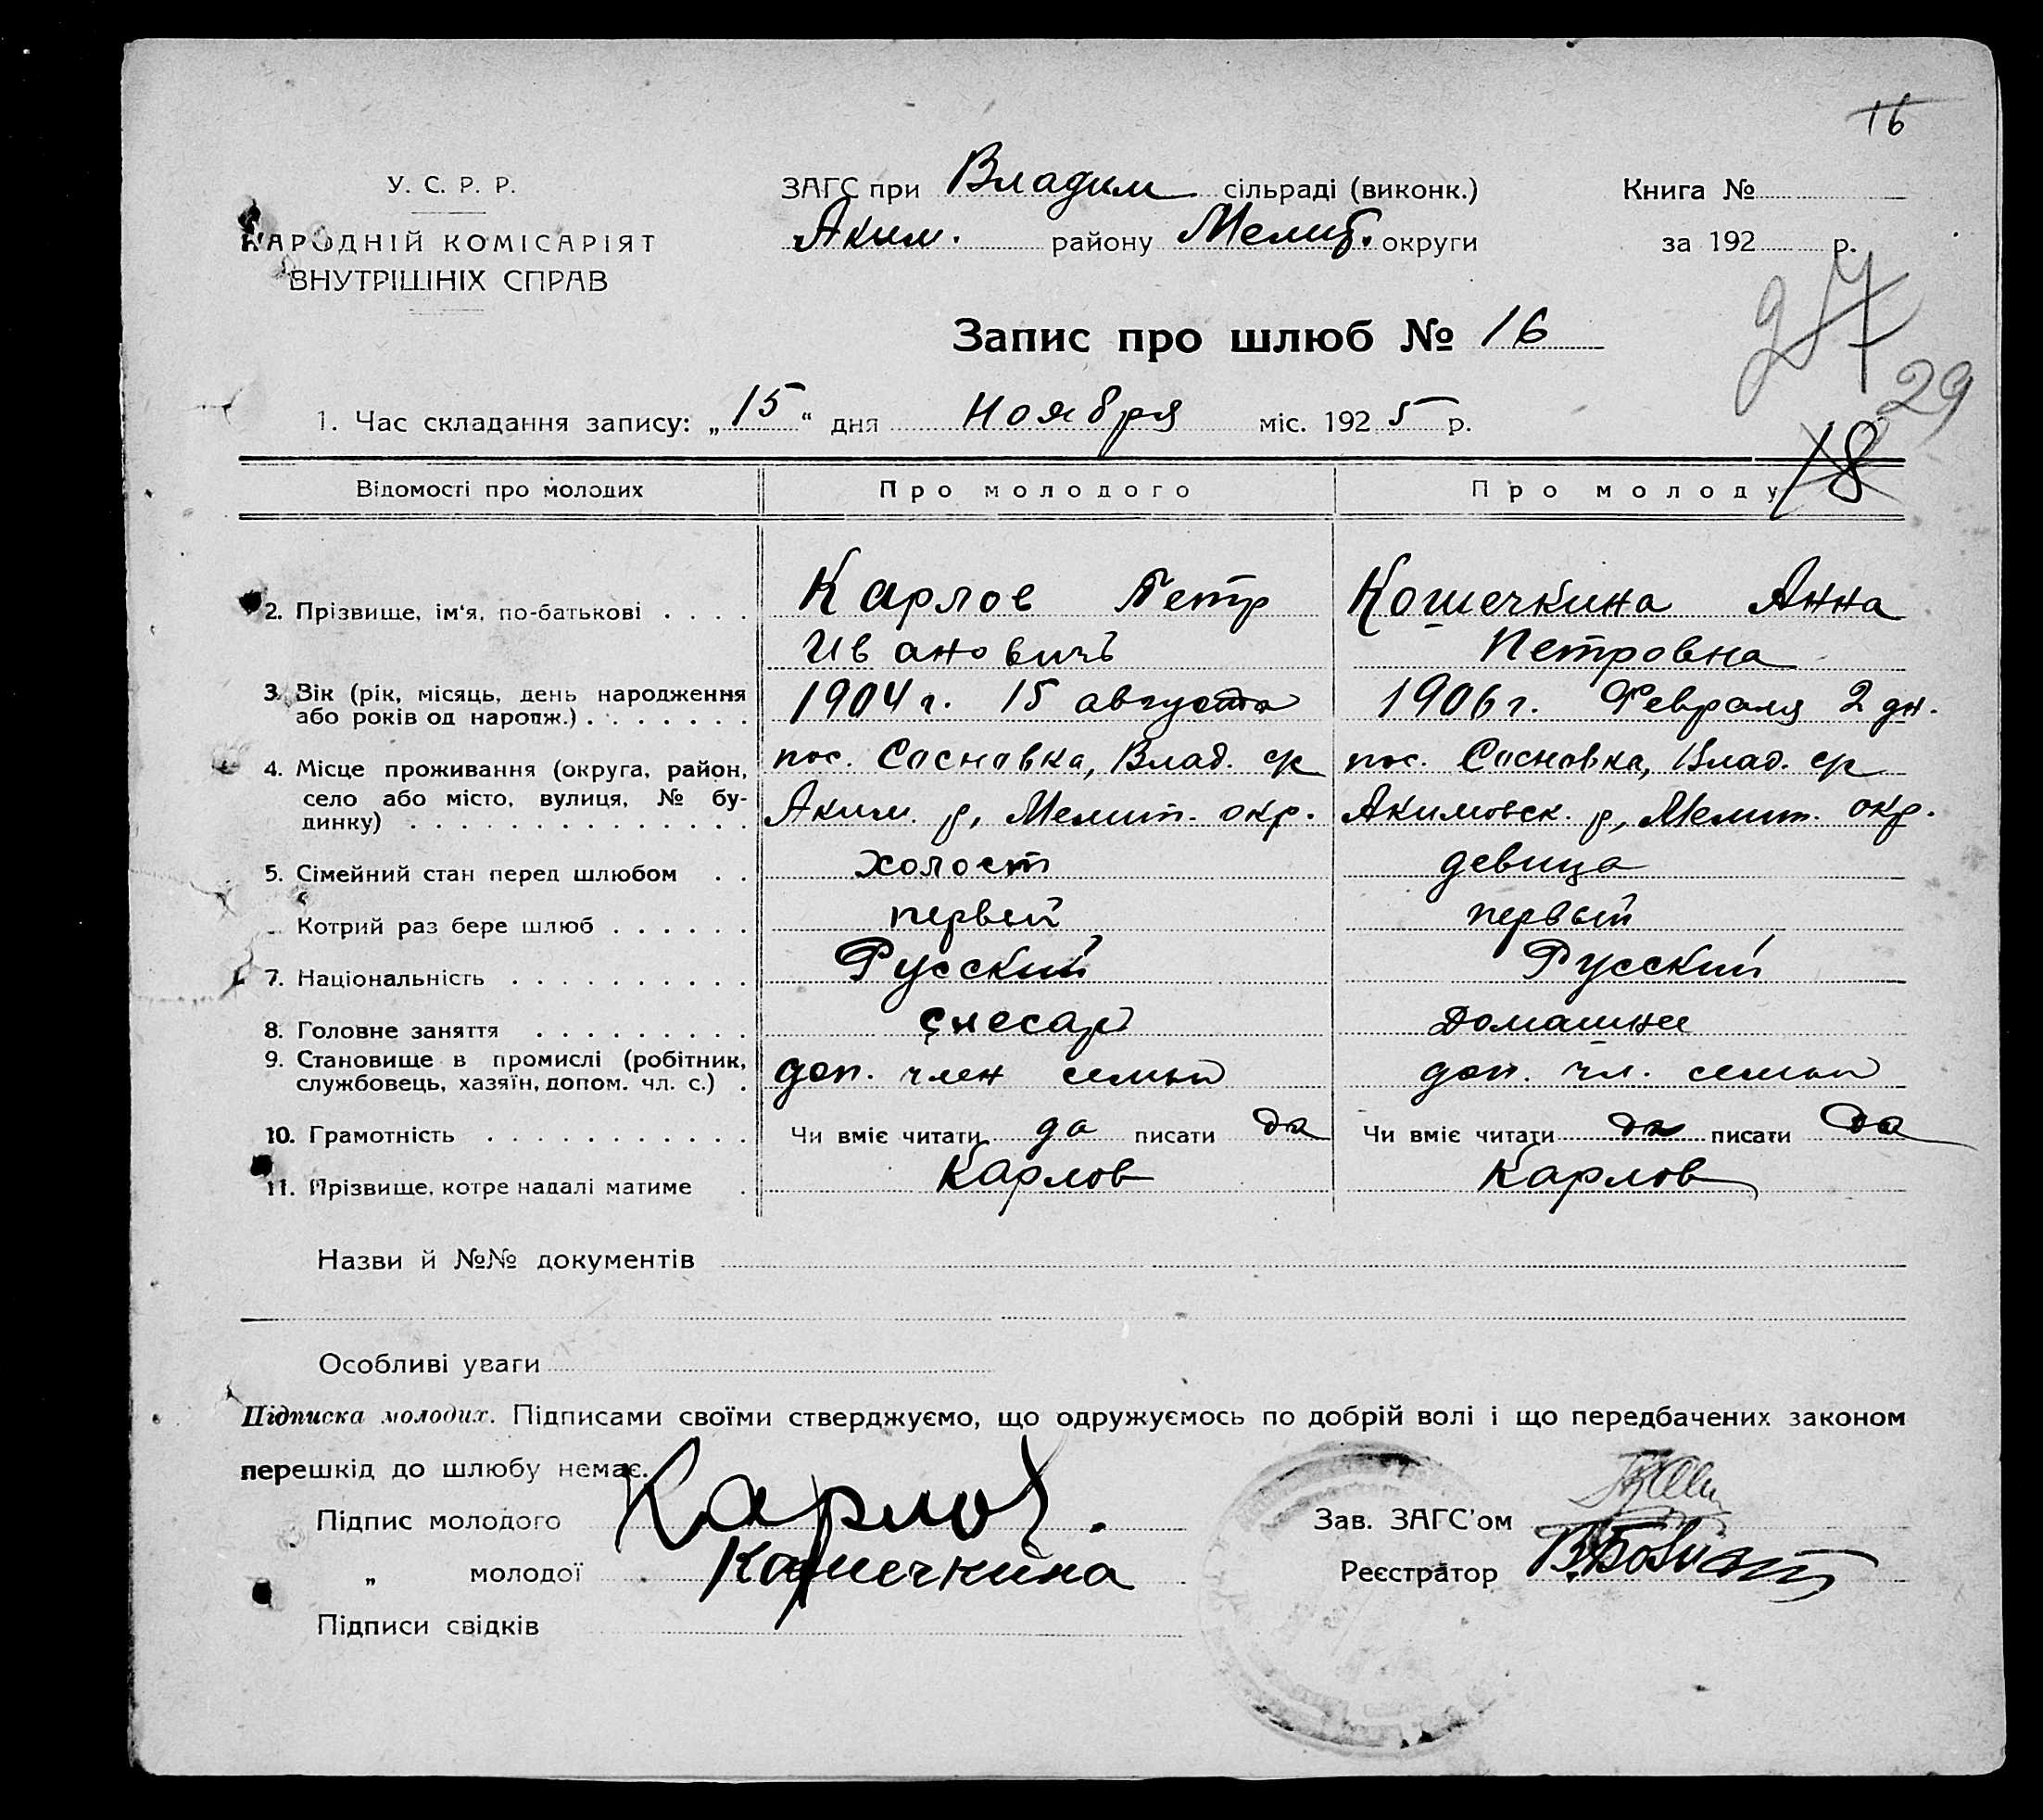 16
У. С. Р. Р.
НАРОДНІЙ КОМІСАРІЯТ
ВНУТРІШНІХ СПРАВ
ЗАГС при Владим сільраді (виконк.)
Аким. району Мелит. округи
Книга №
за 192 р.
27
29
18
Запис про шлюб № 16
1. Час складання запису: „15“ дня Ноября міс. 1925 р.
Відомості про молодих Про молодого Про молоду
2. Прізвище, ім'я, по-батькові . . . . Карлов Петр Кошечкина Анна
Ивановичъ Петровна
3. Вік (рік, місяць, день народження 1904 г. 15 августа 1906 г. Февраля 2 дн.
або років од народж.) . . . . . . .
4. Місце проживання (округа, район, пос. Сосновка, Влад. ср пос. Сосновка, Влад. ср
село або місто, вулиця, № бу-
динку) . . . . . . . . . . . . . Аким. р, Мелит. окр. Акимовск. р, Мелит. окр.
5. Сімейний стан перед шлюбом . . холост девица
Котрий раз бере шлюб . . . . . . первый первый
7. Національність . . . . . . . . . . Русский Русский
8. Головне заняття . . . . . . . . . слесар Домашнее
9. Становище в промислі (робітник, доп. член семьи доп. чл. семьи
службовець, хазяїн, допом. чл. с.) .
10. Грамотність . . . . . . . . . . . Чи вміє читати да писати да Чи вміє читати да писати да
11. Прізвище, котре надалі матиме . Карлов Карлов
Назви й №№ документів
Особливі уваги
Підписка молодих. Підписами своїми стверджуємо, що одружуємось по добрій волі і що передбачених законом
перешкід до шлюбу немає.
Підпис молодого Карлов. Зав. ЗАГС'ом
„ молодої Кошечкина Реєстратор
Підписи свідків